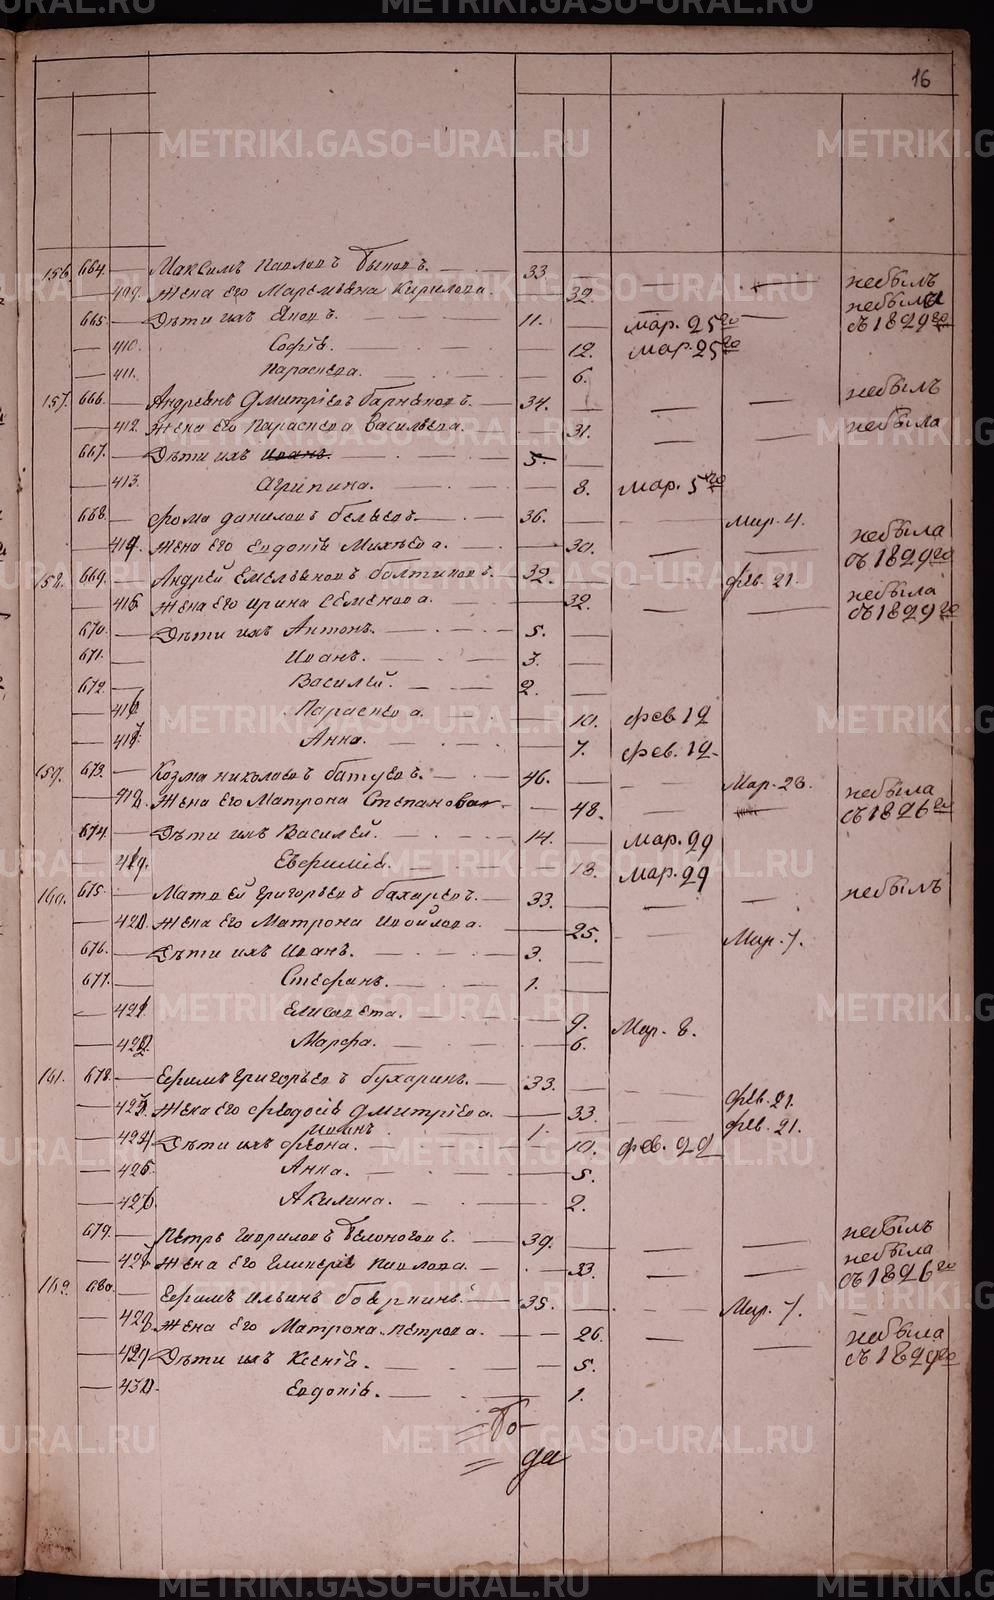 16
156. 664. Максимъ Павловъ Быковъ. 33. небылъ
409. Жена его Маремьяна Кирилова 32. небыла
665. Дѣти ихъ Яковъ. 11. мар. 25го съ 1829го
410. Софія. 12. мар. 25го
411. Параскева. 6.
157. 666. Андреянъ Дмитріевъ 34. небылъ
412. Жена его Параскева Васильева. 31. небыла
667. Дѣти ихъ Иванъ. 5.
413. Агрипина. 8. мар. 5го
668. Фома Даниловъ Бельевъ. 36. Мар. 4.
414. Жена его Евдокія Михѣева. 30. небыла съ 1829го
158. 669. Андрей Емельяновъ Балтиковъ. 32. фев. 21.
415 Жена его Ирина Семенова. 32. небыла съ 1829го
670. Дѣти ихъ Антонъ. 5.
671. Иванъ. 3.
672. Василей. 2.
416 Параскева. 10. фев 12
417. Анна. 7. фев. 12
159. 673. Козма Николаевъ Батуевъ. 46. Мар. 23.
418. Жена его Матрона Степановая 48. небыла съ 1826го
674. Дѣти ихъ Василей. 14. мар. 29
419. Евфимія. 13. мар. 29
160. 675. Матвей Григорьевъ 33. небылъ
420. Жена его Матрона 25. Мар. 7.
676. Дѣти ихъ Иванъ. 3.
677. Стефанъ. 1.
421 Елисавета. 9. Мар. 8.
422. Марфа. 6.
161. 678. Ефимъ Григорьевъ Бухаринъ. 33. фев. 21.
423. Жена его Федосія Дмитріева. 33. фев. 21.
Иванъ 1.
424 Дѣти ихъ 10. фев. 22
425. Анна. 5.
426. Акилина. 2.
679. Петръ Гавриловъ Белоноговъ. 39. небылъ
427 Жена его Гликерія Павлова. 33. небыла съ 1826го
162. 680. Ефимъ Ильинъ 35. Мар. 7.
428 Жена его Матрона Петрова. 26. небыла съ 1829го
429 Дѣти ихъ Ксенія. 5.
430. Евдокія. 1.